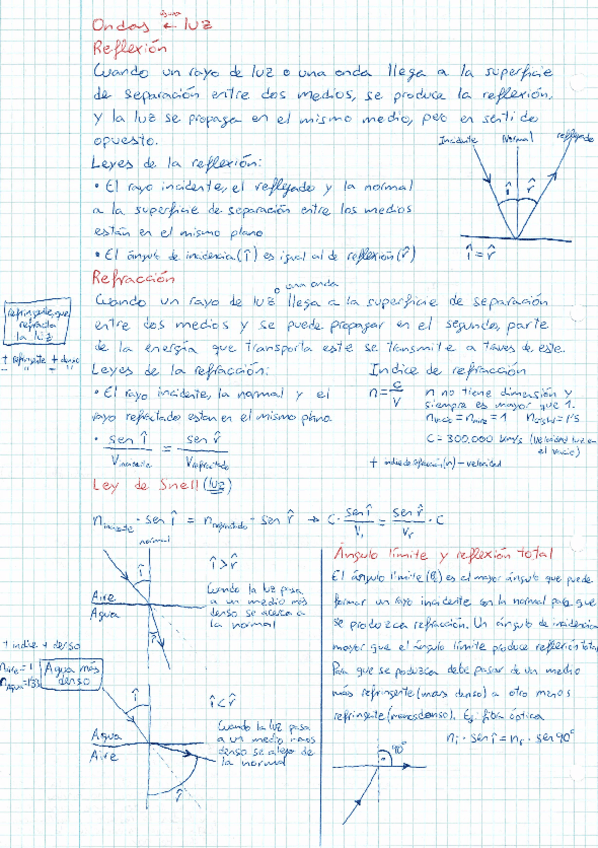 Ondas ← luz
Reflexión
Cuando un rayo de luz o una onda llega a la superficie
de separación entre dos medios, se produce la reflexión,
y la luz se propaga en el mismo medio, pero en sentido
opuesto.
Incidente Normal reflejado
î r̂
î = r̂
Leyes de la reflexión:
• El rayo incidente, el reflejado y la normal
a la superficie de separación entre los medios
están en el mismo plano
• El ángulo de incidencia (î) es igual al de reflexión (r̂)
Refracción
o una onda
Cuando un rayo de luz llega a la superficie de separación
entre dos medios y se puede propagar en el segundo, parte
de la energía que transporta este se transmite a través de este.
refringente, que
refracta
la luz
+ refringente + denso
Leyes de la refracción:
• El rayo incidente, la normal y el
rayo refractado estan en el mismo plano
• sen î / Vincidente = sen r̂ / Vrefractado
Indice de refracción
n = c / v
n no tiene dimensión y
siempre es mayor que 1.
= 1
C = 300.000 km/s (velocidad luz en
el vacío)
+ indice de refracción (n) - velocidad
Ley de Snell (luz)
nincidente · sen î = nrefractado · sen r̂ → C · sen î / Vi = sen r̂ / Vr · C
normal
î
î > r̂
Aire
Agua
r̂
Cuando la luz pasa
a un medio más
denso se acerca a
la normal
+ indice + denso
naire = 1
Agua más
denso
î
î < r̂
Agua
Aire
r̂
Cuando la luz pasa
a un medio menos
denso se aleja de
la normal
Ángulo límite y reflexión total
El ángulo límite es el mayor ángulo que puede
formar un rayo incidente con la normal para que
se produzca refracción. Un ángulo de incidencia
mayor que el ángulo límite produce reflexión total
Para que se produzca debe pasar de un medio
más refringente (mas denso) a otro menos
refringente (menos denso). Ej: fibra óptica
ni · sen î = nr · sen 90°
90°